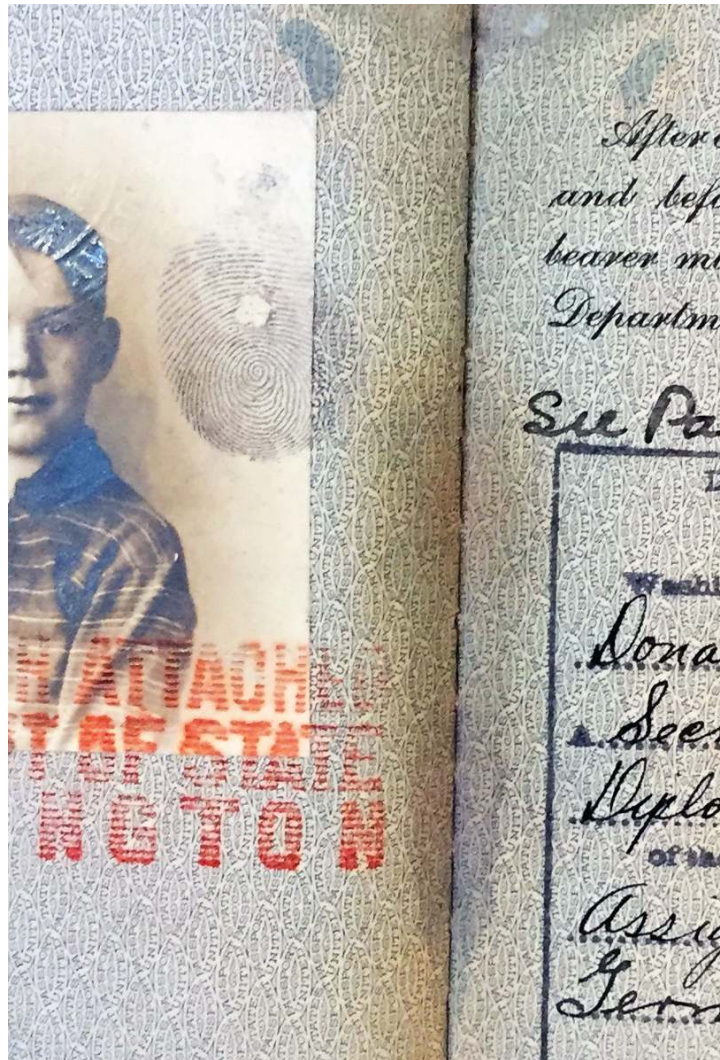 H ATTACHED
T OF STATE
NGTON
After
and bef
bearer m
Departm
See Pa
D
Washi
Dona
A Secr
Diplo
of the
Assig
Germ